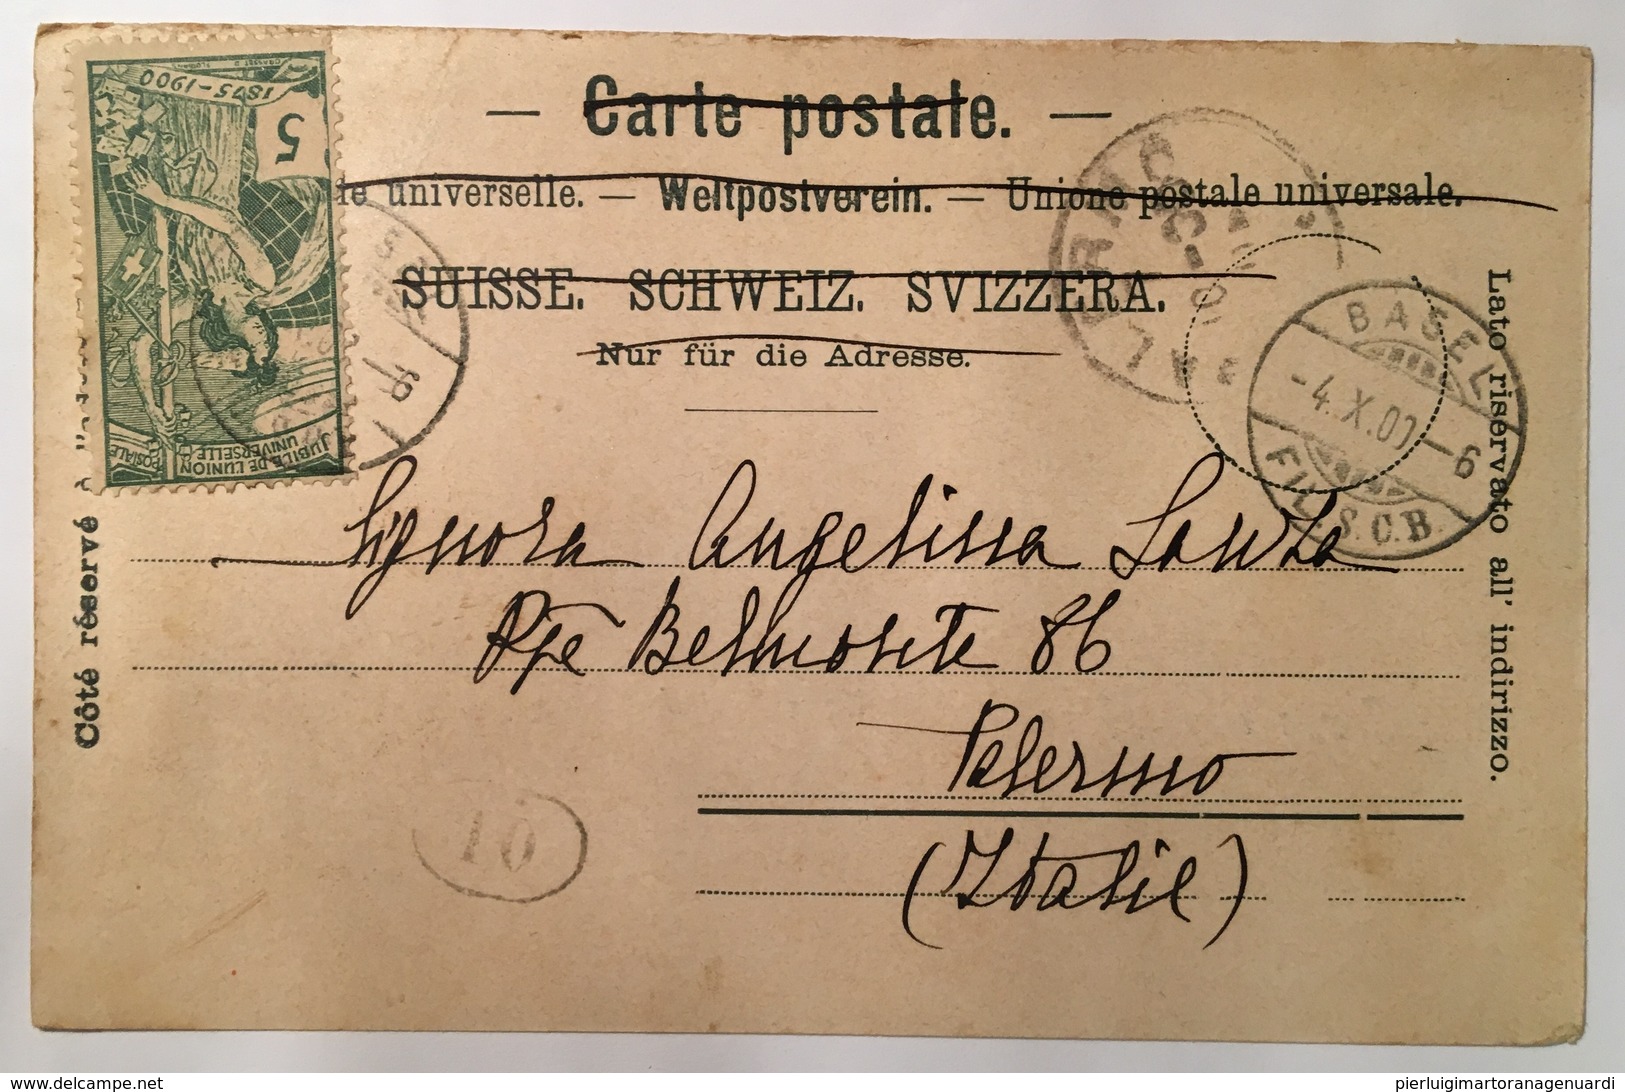 — Carte postale. —
universelle. — Weltpostverein. — Unione postale universale.
SUISSE. SCHWEIZ. SVIZZERA.
Nur für die Adresse.
1875-1900
5
JUBILÉ DE L'UNION
UNIVERSELLE
POSTALE
BASEL
-4.X.00-6
FIL. S.C.B.
Côté réservé à
Lato riservato all' indirizzo.
Signora Angelina Lanza
Belmonte 86
Palermo
(Italie)
10
www.delcampe.net
pierluigimartoranagenuardi